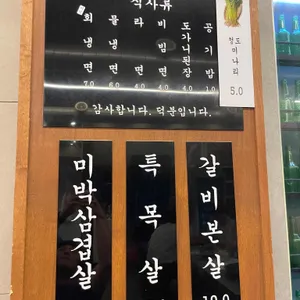 식사류
회냉면 7.0
물냉면 6.0
라면 4.0
비빔면 4.0
도가니된장 4.0
공기밥 1.0
청도미나리 5.0
감사합니다. 덕분입니다.
미박삼겹살
특목살
갈비본살